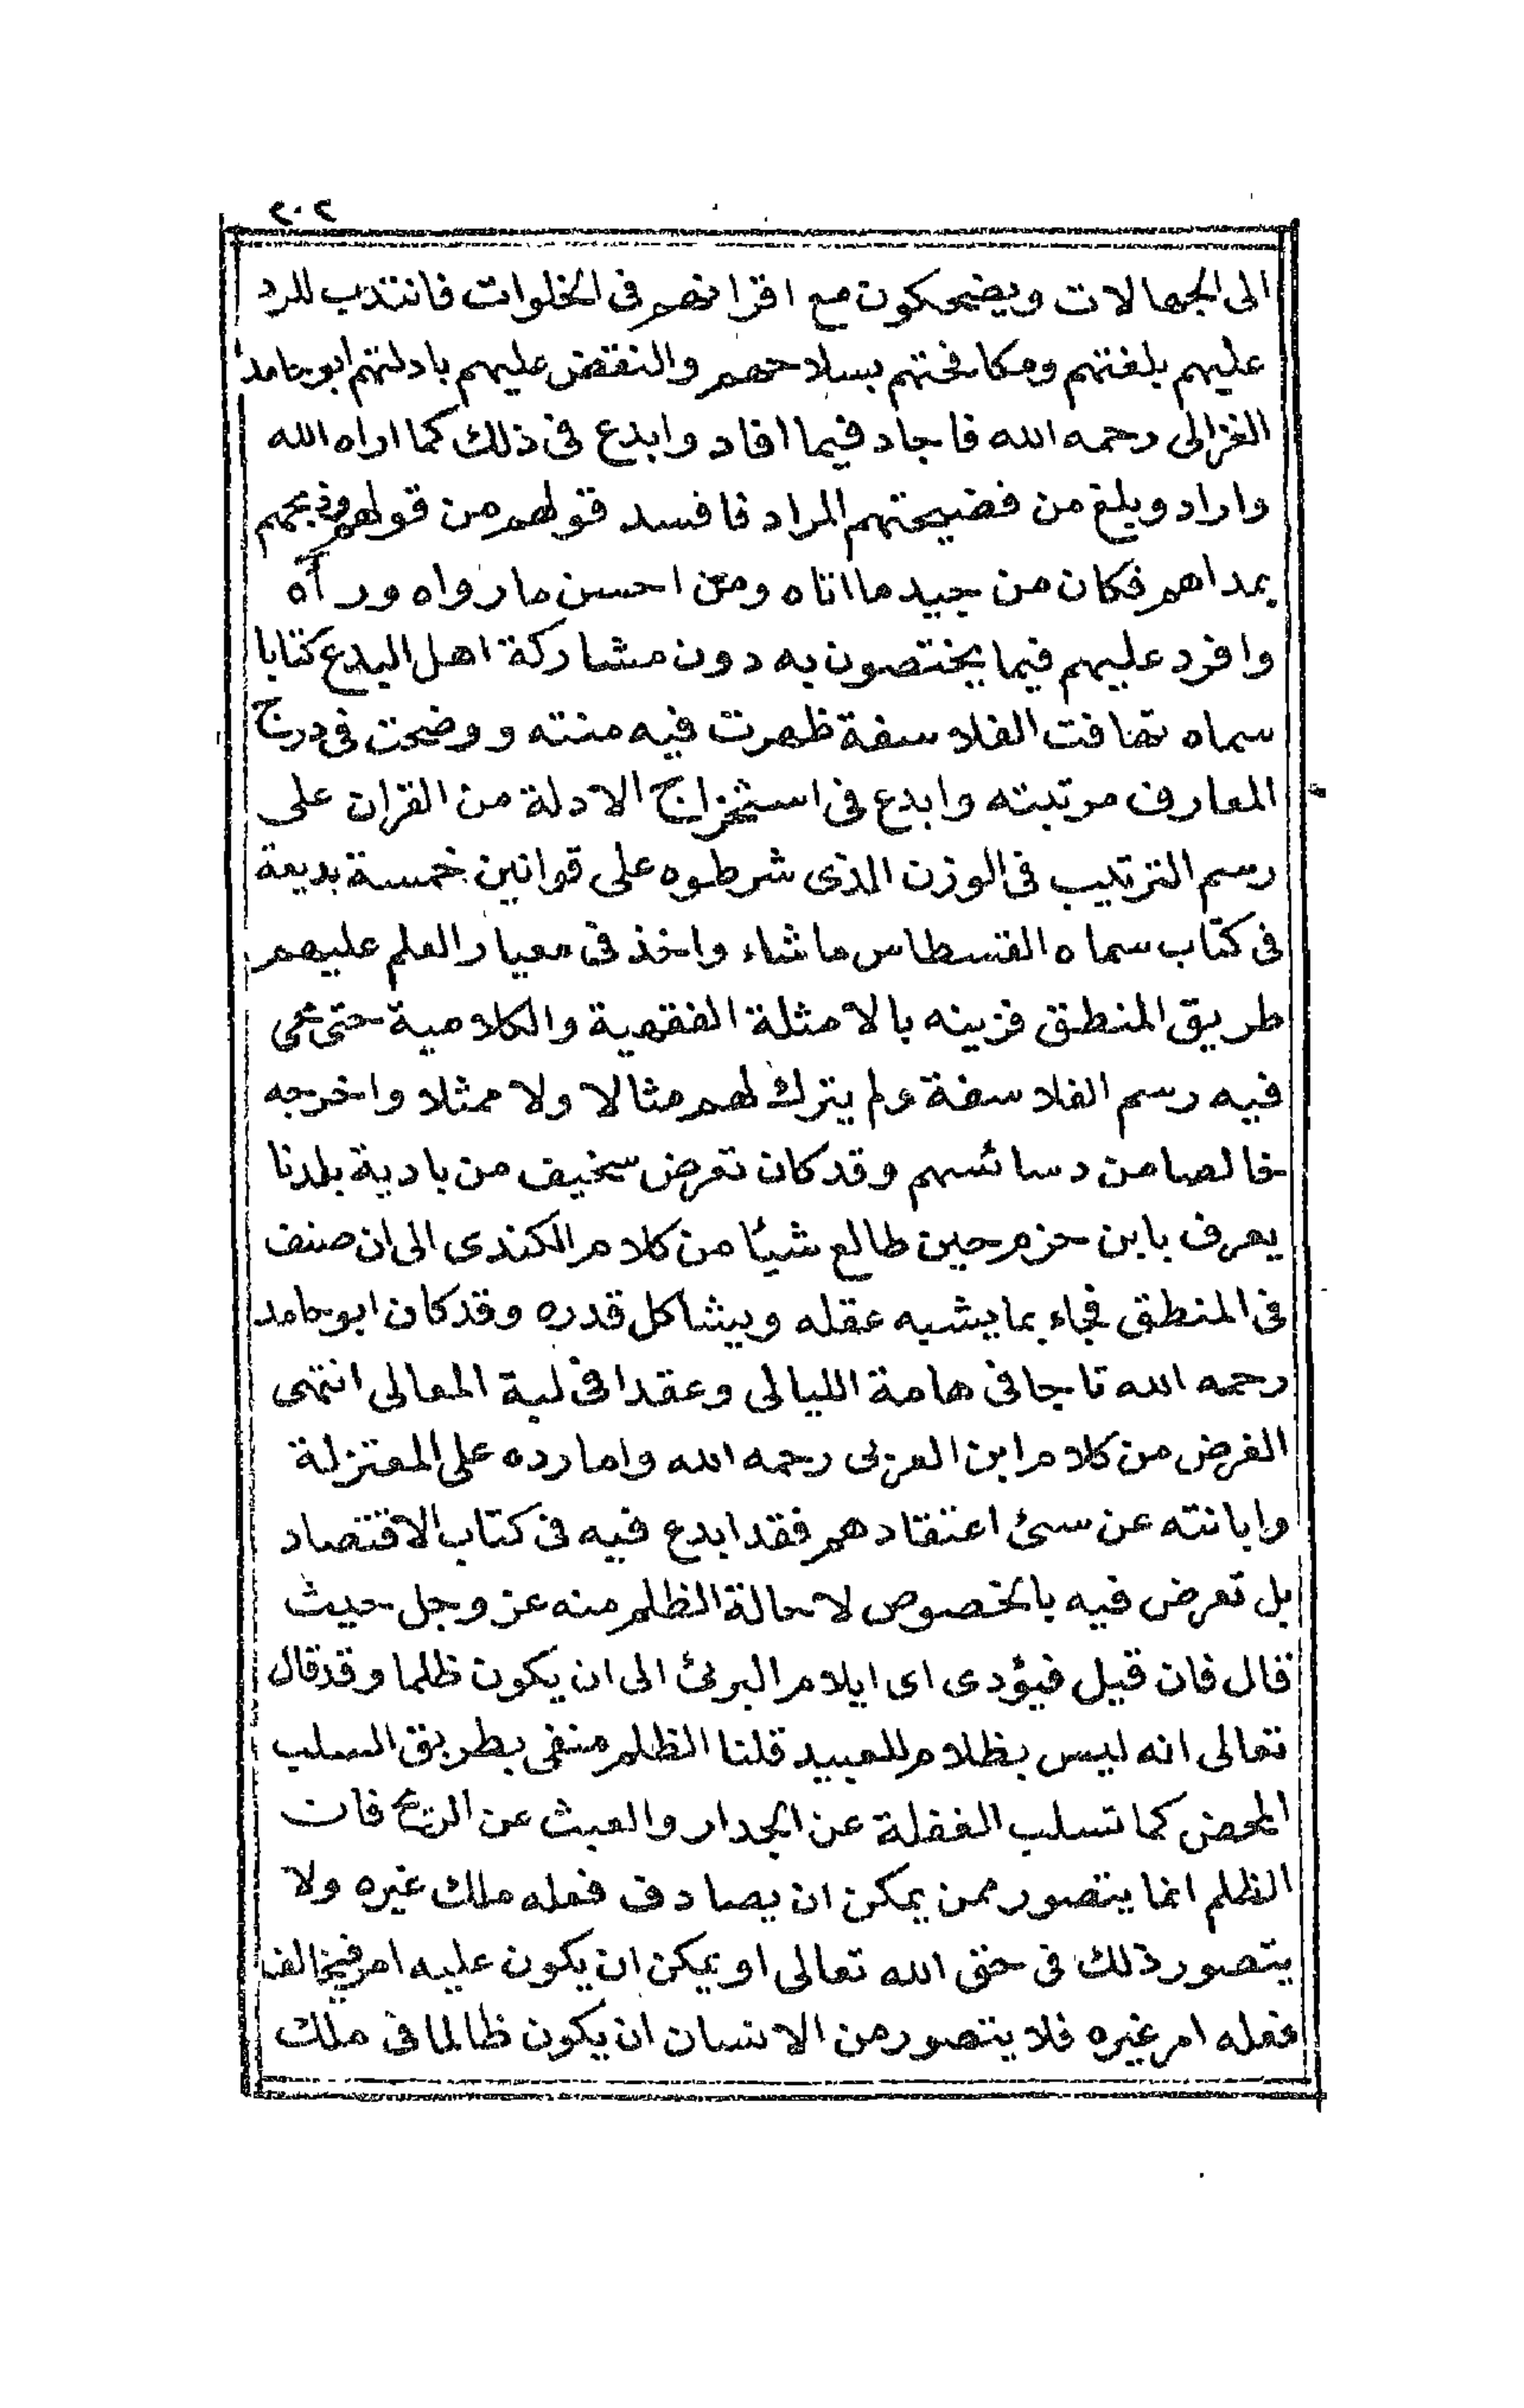 ٢٠٢
الى الجهالات ويضحكون مع اقرانهم فى الخلوات فانتدب للرد
عليهم بلغتهم ومكافحتهم بسلاحهم والنقض عليهم بادلتهم ابو حامد
الغزالى رحمه الله فاجاد فيما افاد وابدع فى ذلك كما اراه الله
واراد وبلغ من فضيحتهم المراد فافسد قولهم من قولهم وذبحهم
بمداهم فكان من جيد ما اتاه ومن احسن ما رواه ورآه
وافرد عليهم فيما يختصون به دون مشاركة اهل البدع كتابا
سماه تهافت الفلاسفة ظهرت فيه منته ووضحت فى درج
المعارف مرتبته وابدع فى استخراج الادلة من القران على
رسم الترتيب فى الوزن الذى شرطوه على قوانين خمسة بديعة
فى كتاب سماه القسطاس ما شاء واخذ فى معيار العلم عليهم
طريق المنطق فزينه بالامثلة الفقهية والكلامية حتى محى
فيه رسم الفلاسفة ولم يترك لهم مثالا ولا ممثلا واخرجه
خالصا من دسائسهم وقد كان تعرض سخيف من بادية بلدنا
يعرف بابن حزم حين طالع شيئا من كلام الكندى الى ان صنف
فى المنطق فجاء بما يشبه عقله ويشاكل قدره وقد كان ابو حامد
رحمه الله تاجا فى هامة الليالى وعقدا فى لبة المعالى انتهى
الغرض من كلام ابن العربى رحمه الله واما رده على المعتزلة
وابانته عن سئ اعتقادهم فقد ابدع فيه فى كتاب الاقتصاد
بل تعرض فيه بالخصوص لاحالة الظلم منه عز وجل حيث
قال فان قيل فيؤدى اى ايلام البرئ الى ان يكون ظلما وقد قال
تعالى انه ليس بظلام للعبيد قلنا الظلم منفى بطريق السلب
المحض كما تسلب الغفلة عن الجدار والعبث عن الريح فان
الظلم انما يتصور ممن يمكن ان يصادف فعله ملك غيره ولا
يتصور ذلك فى حق الله تعالى او يمكن ان يكون عليه امر فيخالف
فعله امر غيره فلا يتصور من الانسان ان يكون ظالما فى ملك